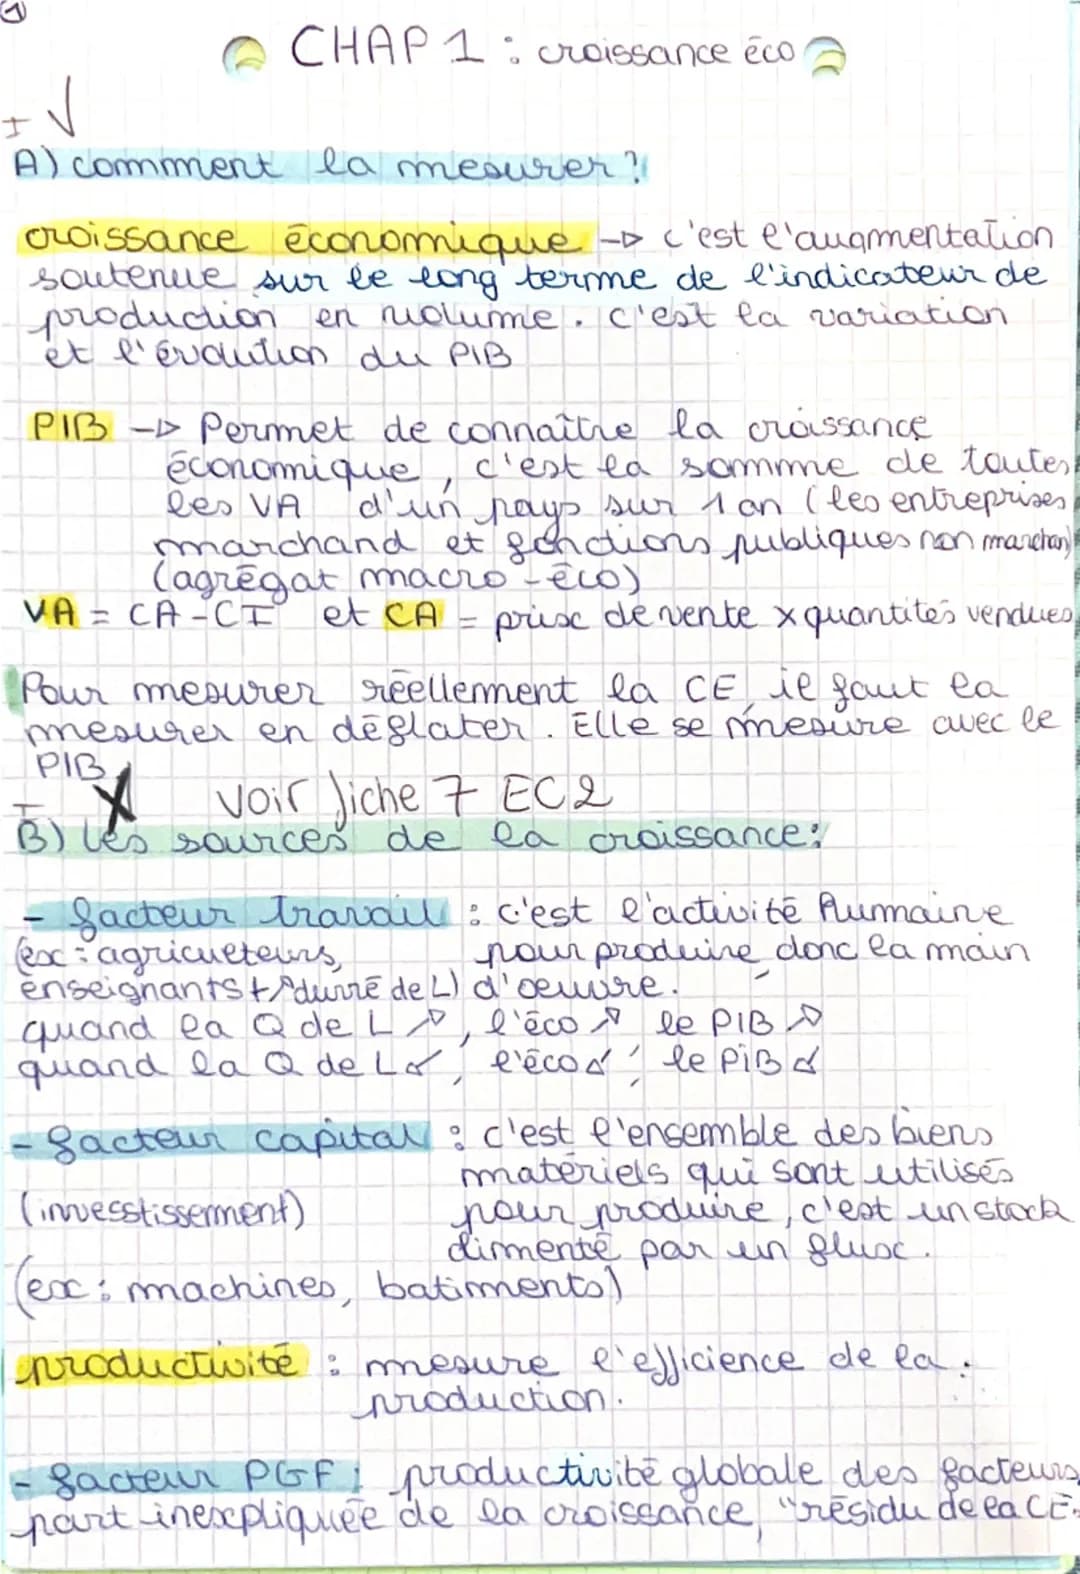 1
CHAP 1 : croissance éco
I
A) comment la mesurer?
croissance économique -> c'est l'augmentation
soutenue sur le long terme de l'indicateur de
production en volume. c'est la variation
et l'évolution du PIB
PIB -> Permet de connaître la croissance
économique, c'est la somme de toutes
les VA d'un pays sur 1 an (les entreprises
marchand et fonctions publiques non marchan)
(agrégat macro-éco)
VA = CA-CI et CA = prix de vente x quantités vendues
Pour mesurer réellement la CE, il faut la
mesurer en déflater. Elle se mesure avec le
PIB
X voir fiche 7 EC2
B) les sources de la croissance:
- facteur travail : c'est l'activité humaine
(ex: agriculteurs, pour produire, donc la main
enseignants + durré de L) d'oeuvre.
quand la Q de L ↗, l'éco ↗ le PIB ↗
quand la Q de L ↙, l'éco ↙, le PiB ↙
- facteur capital : c'est l'ensemble des biens
matériels qui sont utilisés
(invesstissement) pour produire, c'est un stock
alimenté par un flux.
(ex: machines, batiments)
productivité : mesure l'efficience de la
production.
- facteur PGF : productivité globale des facteurs,
part inexpliquée de la croissance, "résidu de la CE.